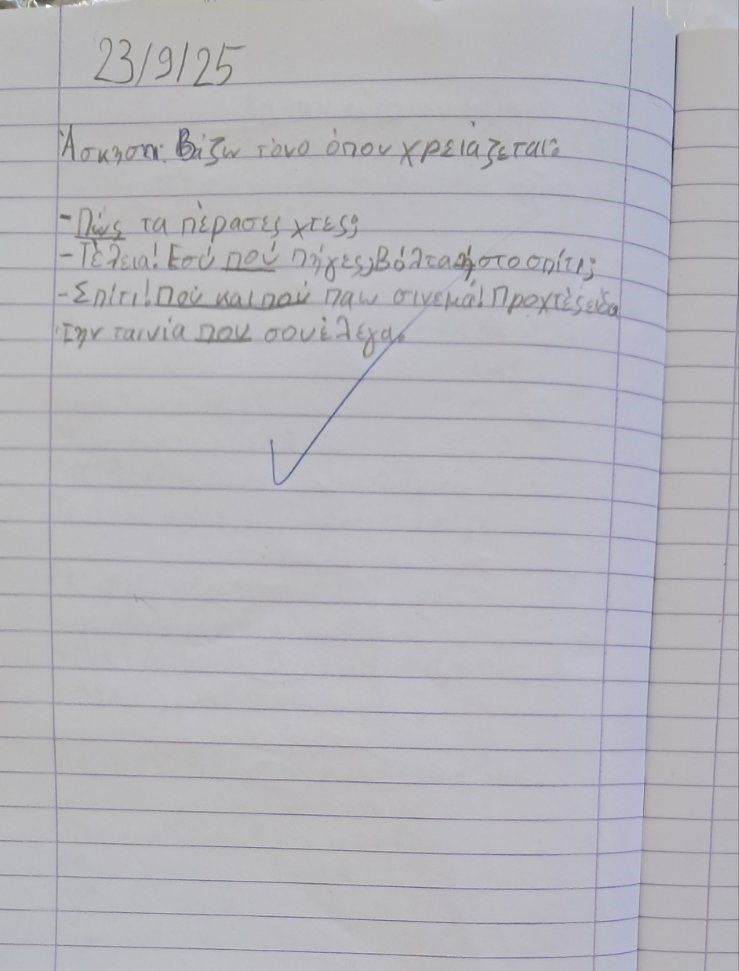 23/9/25
Άσκηση: Βάζω τόνο όπου χρειάζεται:
-Πώς τα πέρασες χτες;
-Τέλεια! Εσύ πού πήγες; Βόλτα ή στο σπίτι;
-Σπίτι! Πού και πού παω σινεμά! Προχτές είδα
την ταινία που σου έλεγα.